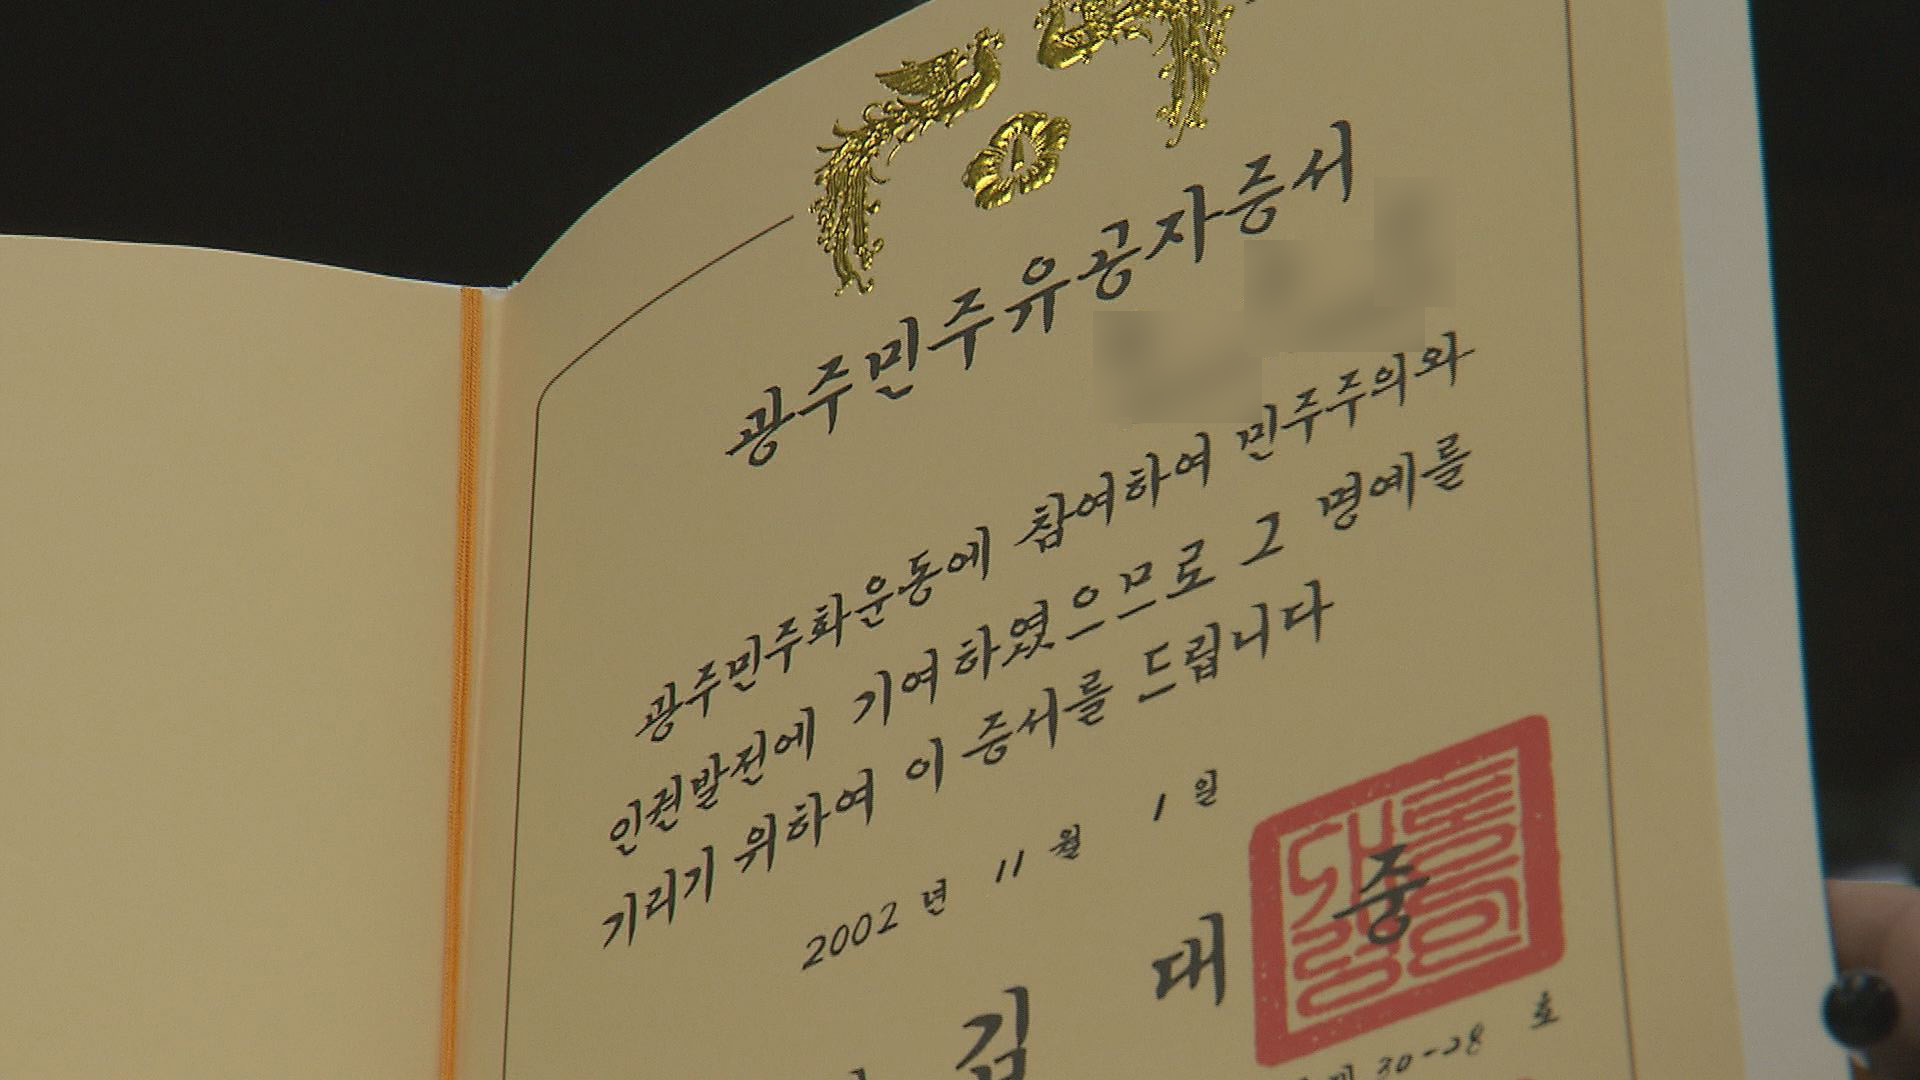 광주민주유공자증서
광주민주화운동에 참여하여 민주주의와
인권발전에 기여하였으므로 그 명예를
기리기 위하여 이 증서를 드립니다
2002년 11월 1일
김 대 중
대통령인
30-28 호